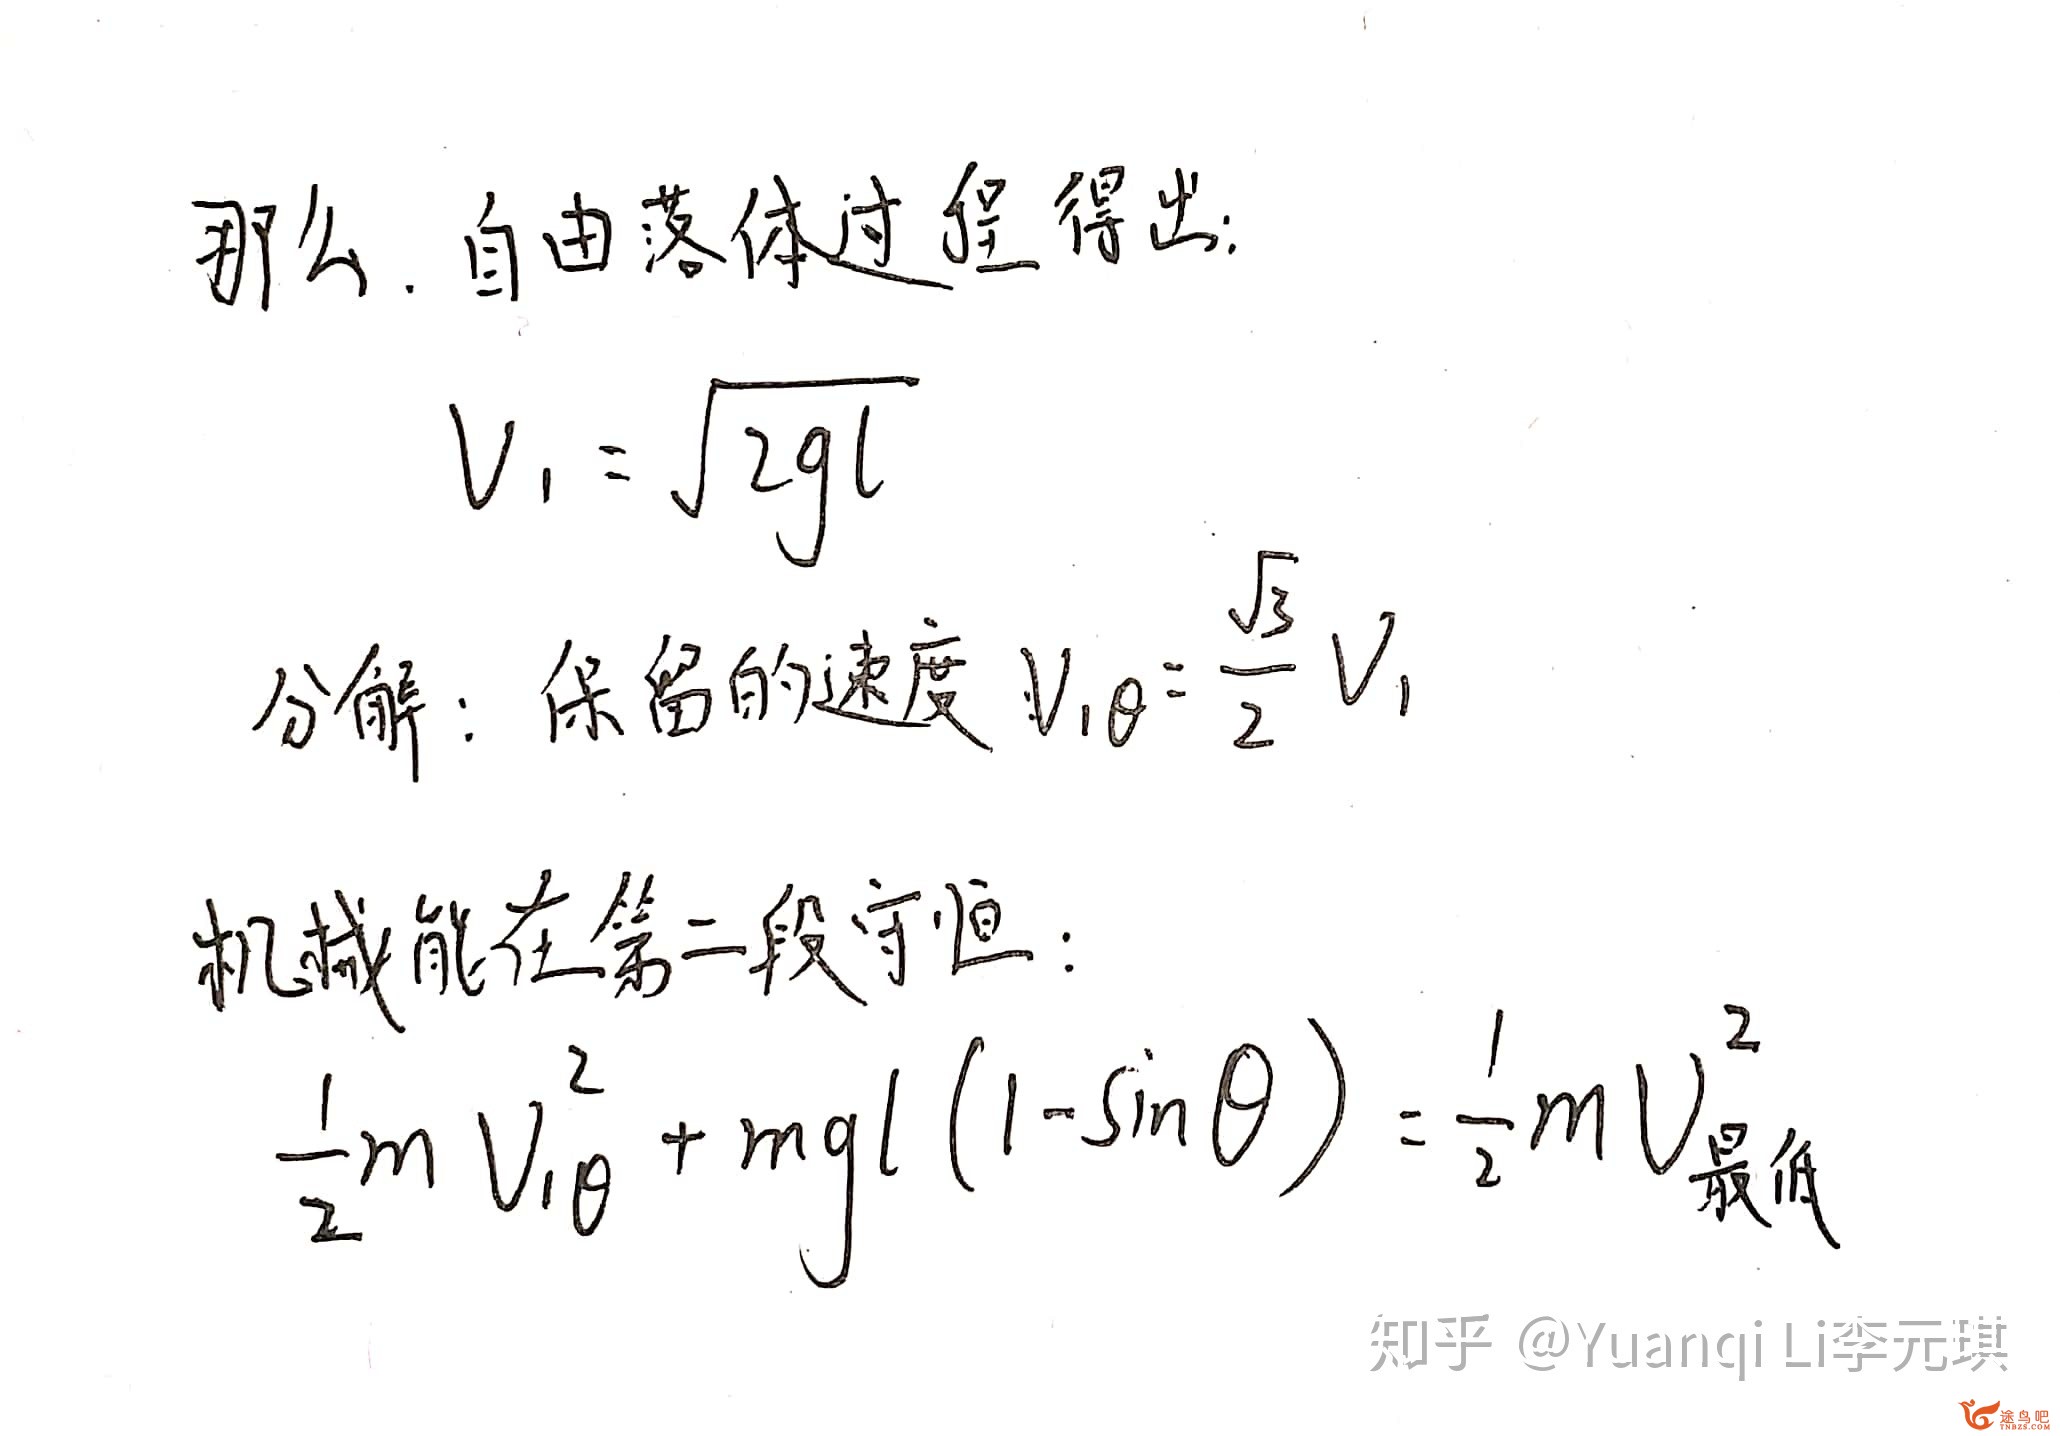 那么.自由落体过程得出:
V₁=√2gl
分解:保留的速度 V₁θ=√3/2 V₁
机械能在第二段守恒:
1/2 m V₁θ² + mgl(1-sinθ) = 1/2 m V最低²
知乎 @Yuanqi Li李元琪
途鸟吧
TNBZS.COM